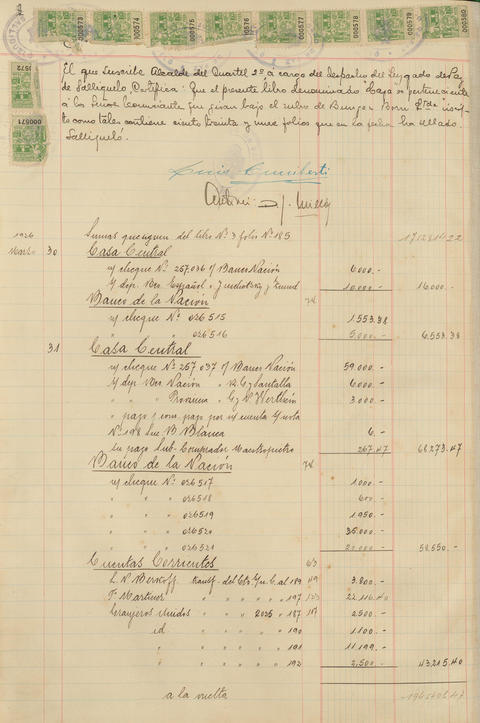 000573
000574
000575
000576
000577
000578
000579
000580
000572
000571
El que suscribe Alcalde del Cuartel 2º a cargo del despacho del Juzgado de Paz
de Salliqueló, Certifica: Que el presente libro denominado Caja pertenece
a los Sres. comerciantes que giran bajo el rubro de Bunge y Born Ltda
como tales contiene ciento treinta y nueve folios que en la fecha ha sellado.
Salliqueló.
Luis Cuniberti
Antonio
1926 Sumas que siguen del libro Nº 3 folio Nº 185
Marzo 30 Casa Central
n/ cheque Nº 257.036 c/ Banco Nación 6.000.-
s/ dep. Bco. Español 10.000.- 16.000.-
Banco de la Nación
n/ cheque Nº 026515 1553.38
" " 026516 5.000.- 6.553.38
31 Casa Central
n/ cheque Nº 257.037 c/ Banco Nación 59.000.-
s/ dep. Bco. Nación " R. G. Santalla 6.000.-
" " " Provincia " G. y V. Werthein 3.000.-
" pago s/ com. pago por n/ cuenta s/ nota
Nº 198 Suc. B. Blanca 6.-
su pago Sub-Comprador Maestropietro 267.47 68273.47
Banco de la Nación
n/ cheque Nº 026517 1000.-
" " " 026518 600.-
" " " 026519 1.950.-
" " " 026520 35.000.-
" " " 026521 20.000.- 58.550.-
Cuentas Corrientes 63
L. N. Berkoff transf. del Cto. al 189 119 3.800.-
F. Martinez " " " " 197 22.116.40
Graneros Unidos " " 2025 " 187 187 2500.-
id. " " " " 190 1.100.-
" " " " " 191 11.199.-
" " " " " 192 2.500.- 43215.40
a la vuelta